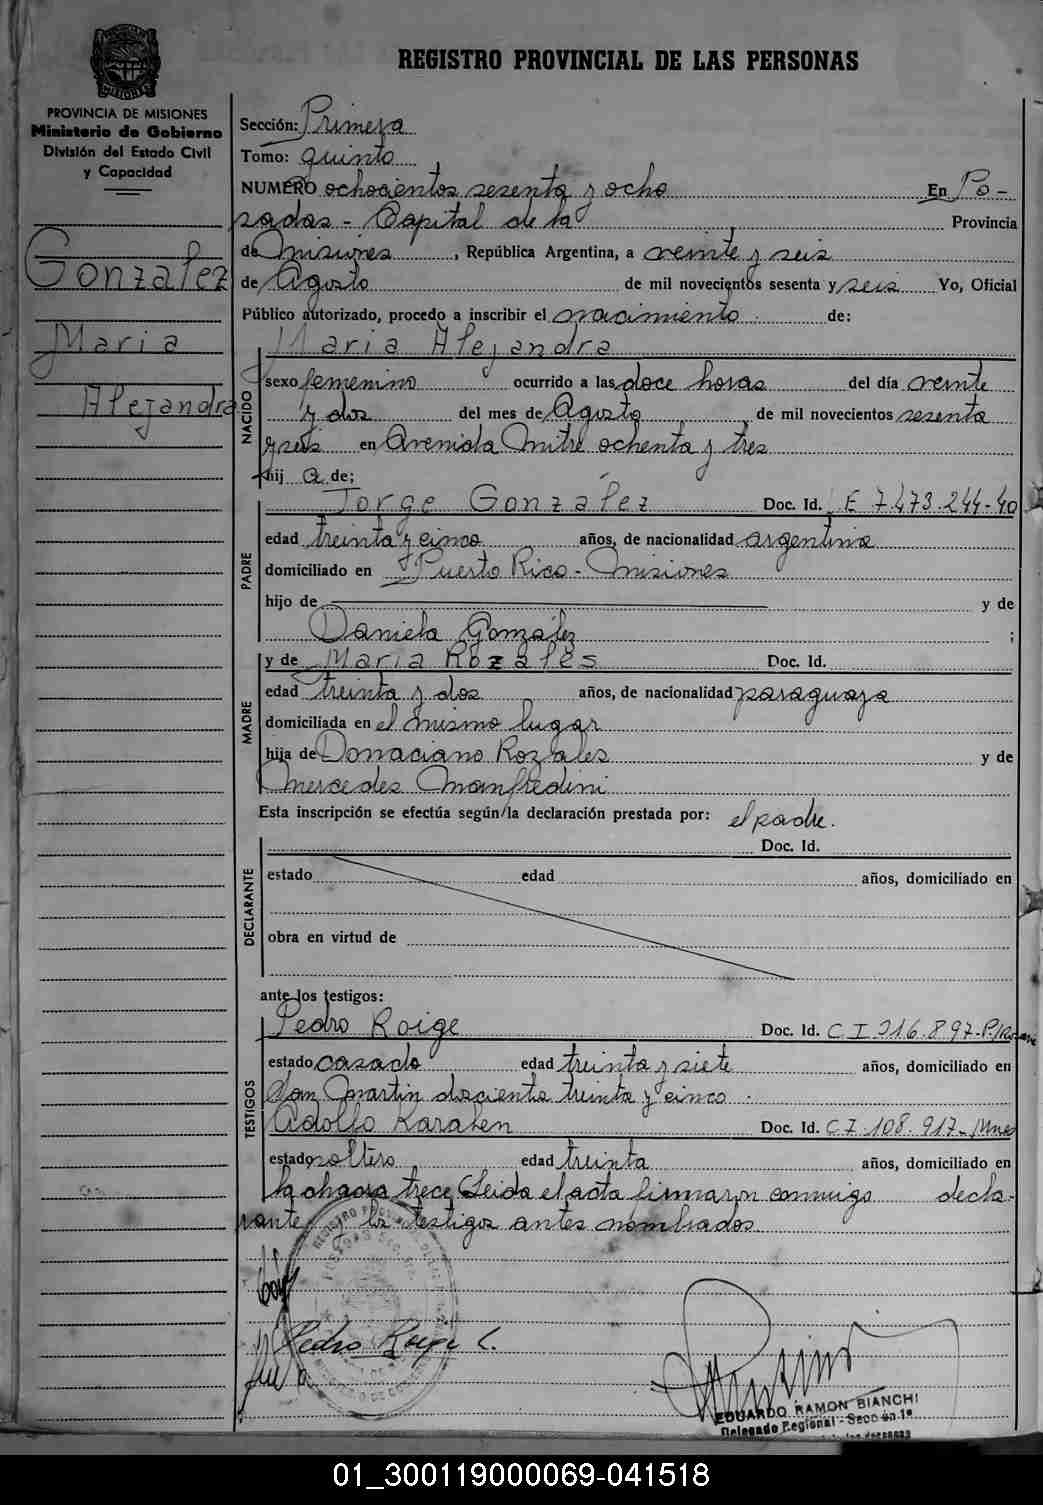 REGISTRO PROVINCIAL DE LAS PERSONAS
PROVINCIA DE MISIONES
Ministerio de Gobierno
División del Estado Civil
y Capacidad
Gonzalez
Maria
Alejandra
Sección: Primera
Tomo: quinto
NUMERO ochocientos sesenta y ocho En Po-
sadas - Capital de la Provincia
de Misiones, República Argentina, a veinte y seis
de Agosto de mil novecientos sesenta y seis Yo, Oficial
Público autorizado, procedo a inscribir el nacimiento de:
Maria Alejandra
NACIDO
sexo femenino ocurrido a las doce horas del día veinte
y dos del mes de Agosto de mil novecientos sesenta
y seis en Avenida Mitre ochenta y tres
hij a de:
PADRE
Jorge González Doc. Id. E 7.473.244-40
edad treinta y cinco años, de nacionalidad argentina
domiciliado en Puerto Rico - Misiones
hijo de y de
Daniela González ;
MADRE
y de Maria Rozales Doc. Id.
edad treinta y dos años, de nacionalidad paraguaya
domiciliada en el mismo lugar
hija de Donaciano Rozales y de
Mercedes Manfredini
Esta inscripción se efectúa según/la declaración prestada por: el padre.
DECLARANTE
Doc. Id.
estado edad años, domiciliado en
obra en virtud de
ante los testigos:
TESTIGOS
Pedro Roige Doc. Id. C I 216.897-P/
estado casado edad treinta y siete años, domiciliado en
San Martin doscientos treinta y cinco
Adolfo Karaben Doc. Id. C I 108.917-Mnes
estado soltero edad treinta años, domiciliado en
la chacra trece Leida el acta firmaron conmigo decla-
rante y los testigos antes nombrados
Pedro Roige C.
EDUARDO RAMON BIANCHI
Delegado Regional - Sección 1ª
01_300119000069-041518